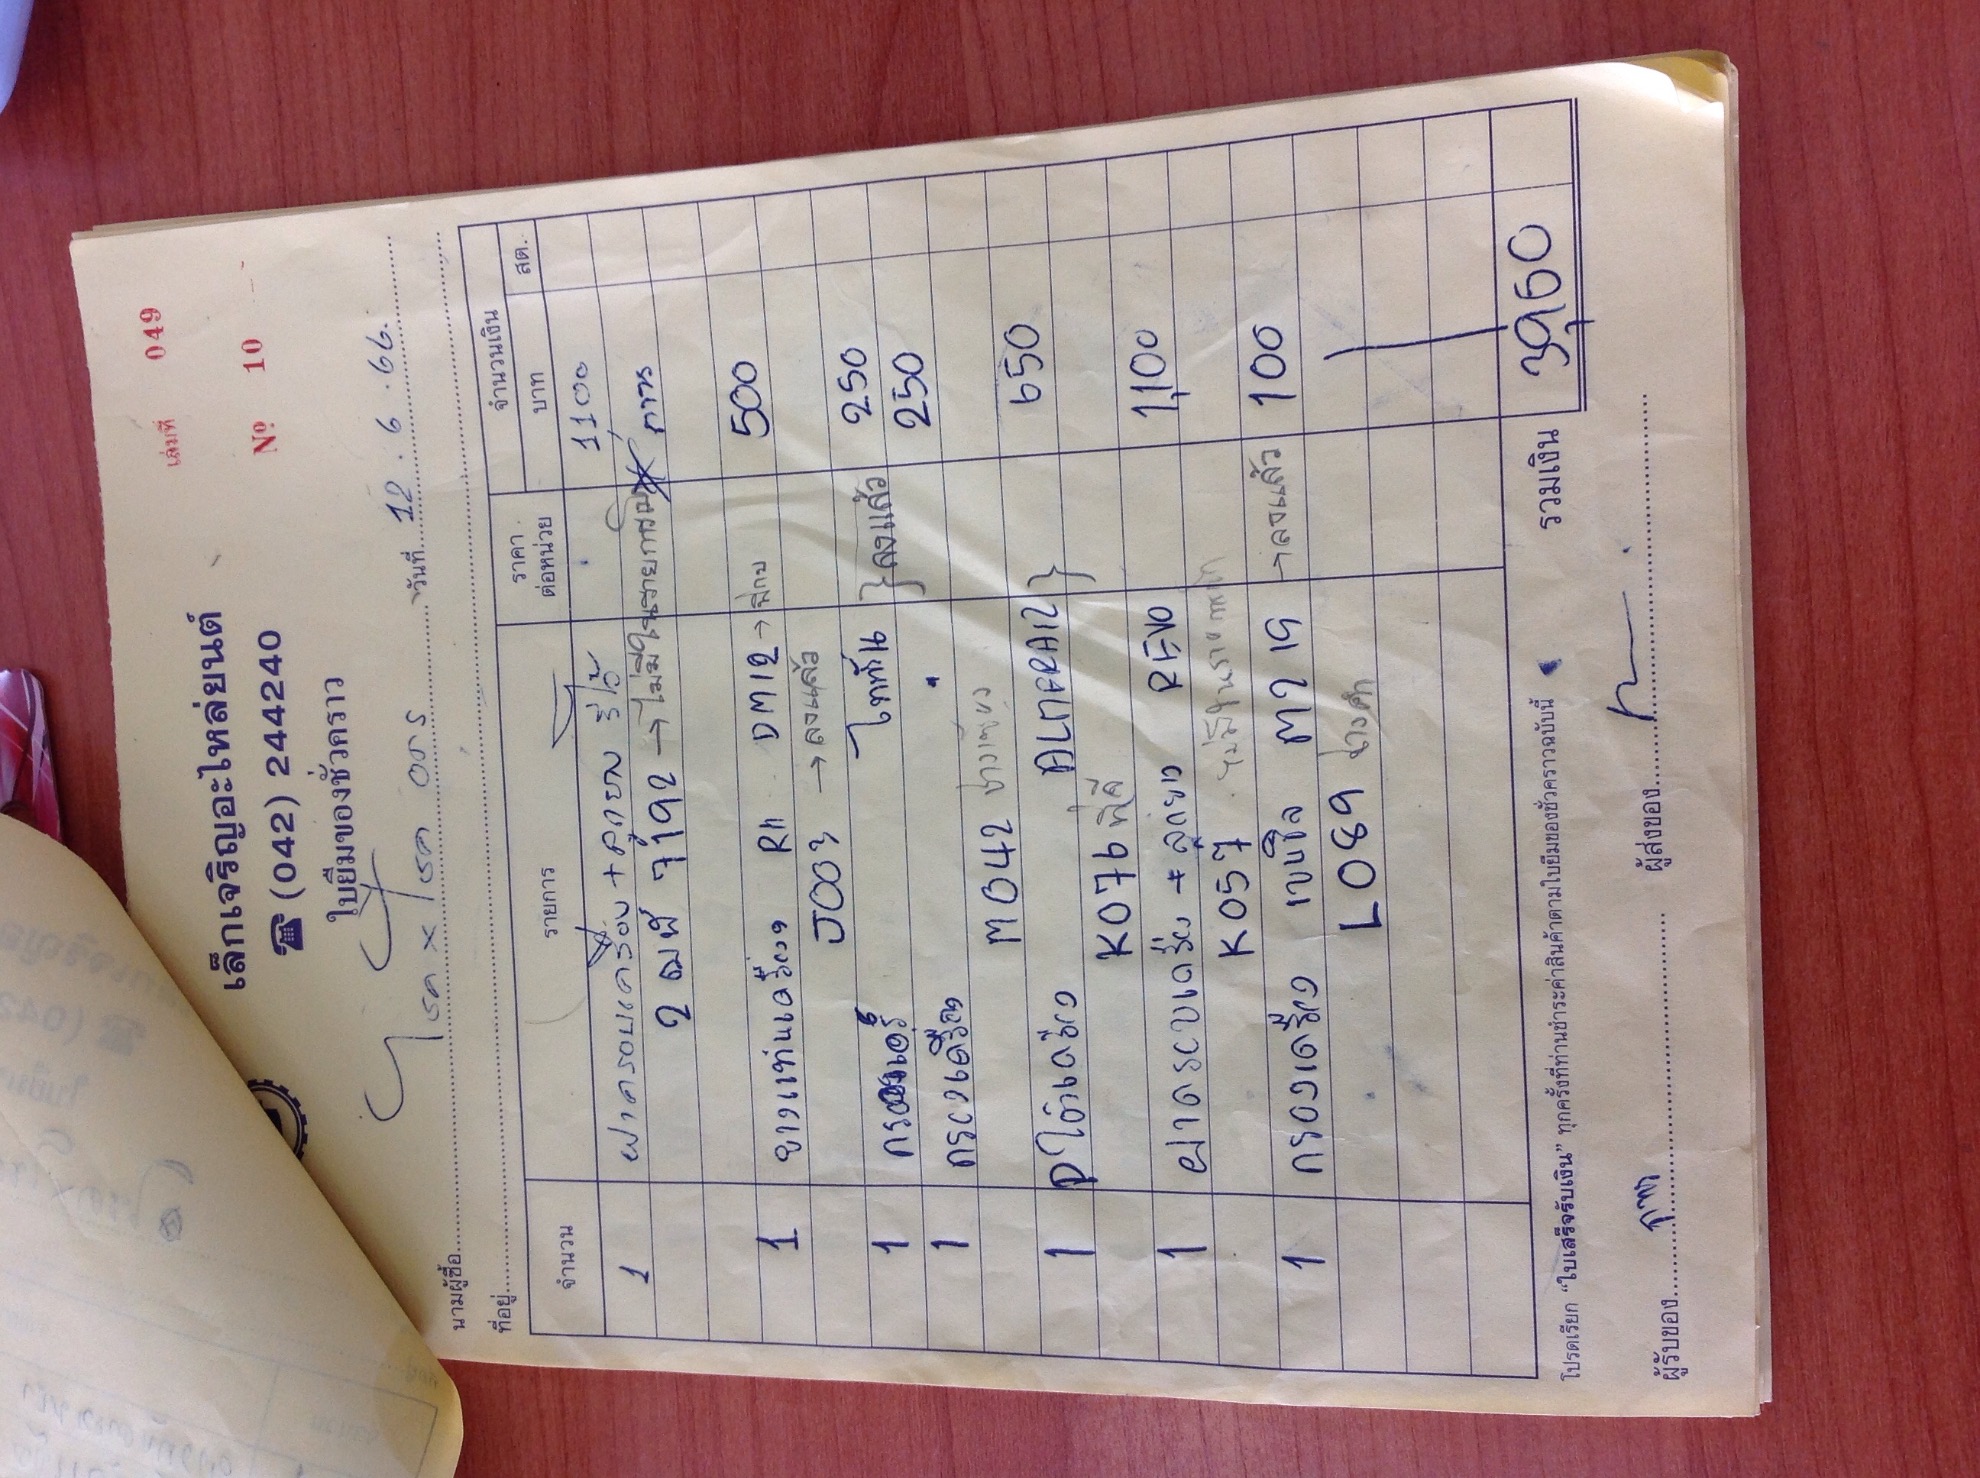 เล่มที่ 049
เล็กเจริญอะไหล่ยนต์
☎ (042) 244240
Nº 10
ใบยืมของชั่วคราว
นามผู้ซื้อ
วันที่ 12.6.66.
ที่อยู่
จำนวน รายการ ราคาต่อหน่วย จำนวนเงิน
บาท สต.
1 ฝาครอบเครื่อง + ลูกยาง รีโว้ 1100
2 ฒฬ 7192 → ไม่มีในรายการ
1 ยางแท่นเครื่อง RH DM12 → 500
J003 → ลงแล้ว
1 กรองแอร์ ไททัน } ลงแล้ว 250
1 กรองเครื่อง 250
M042
1 ปูโต้วเครื่อง ALMERA(12) 650
K076
1 ฝาครอบเครื่อง + ลูกยาง REVO 1,100
K057 ไม่มีในรายการ
1 กรองเครื่อง เบนซิล → ลงแล้ว 100
L089
รวมเงิน 3,960
โปรดเรียก “ใบเสร็จรับเงิน” ทุกครั้งที่ท่านชำระค่าสินค้าตามใบยืมของชั่วคราวฉบับนี้
ผู้รับของ ผู้ส่งของ